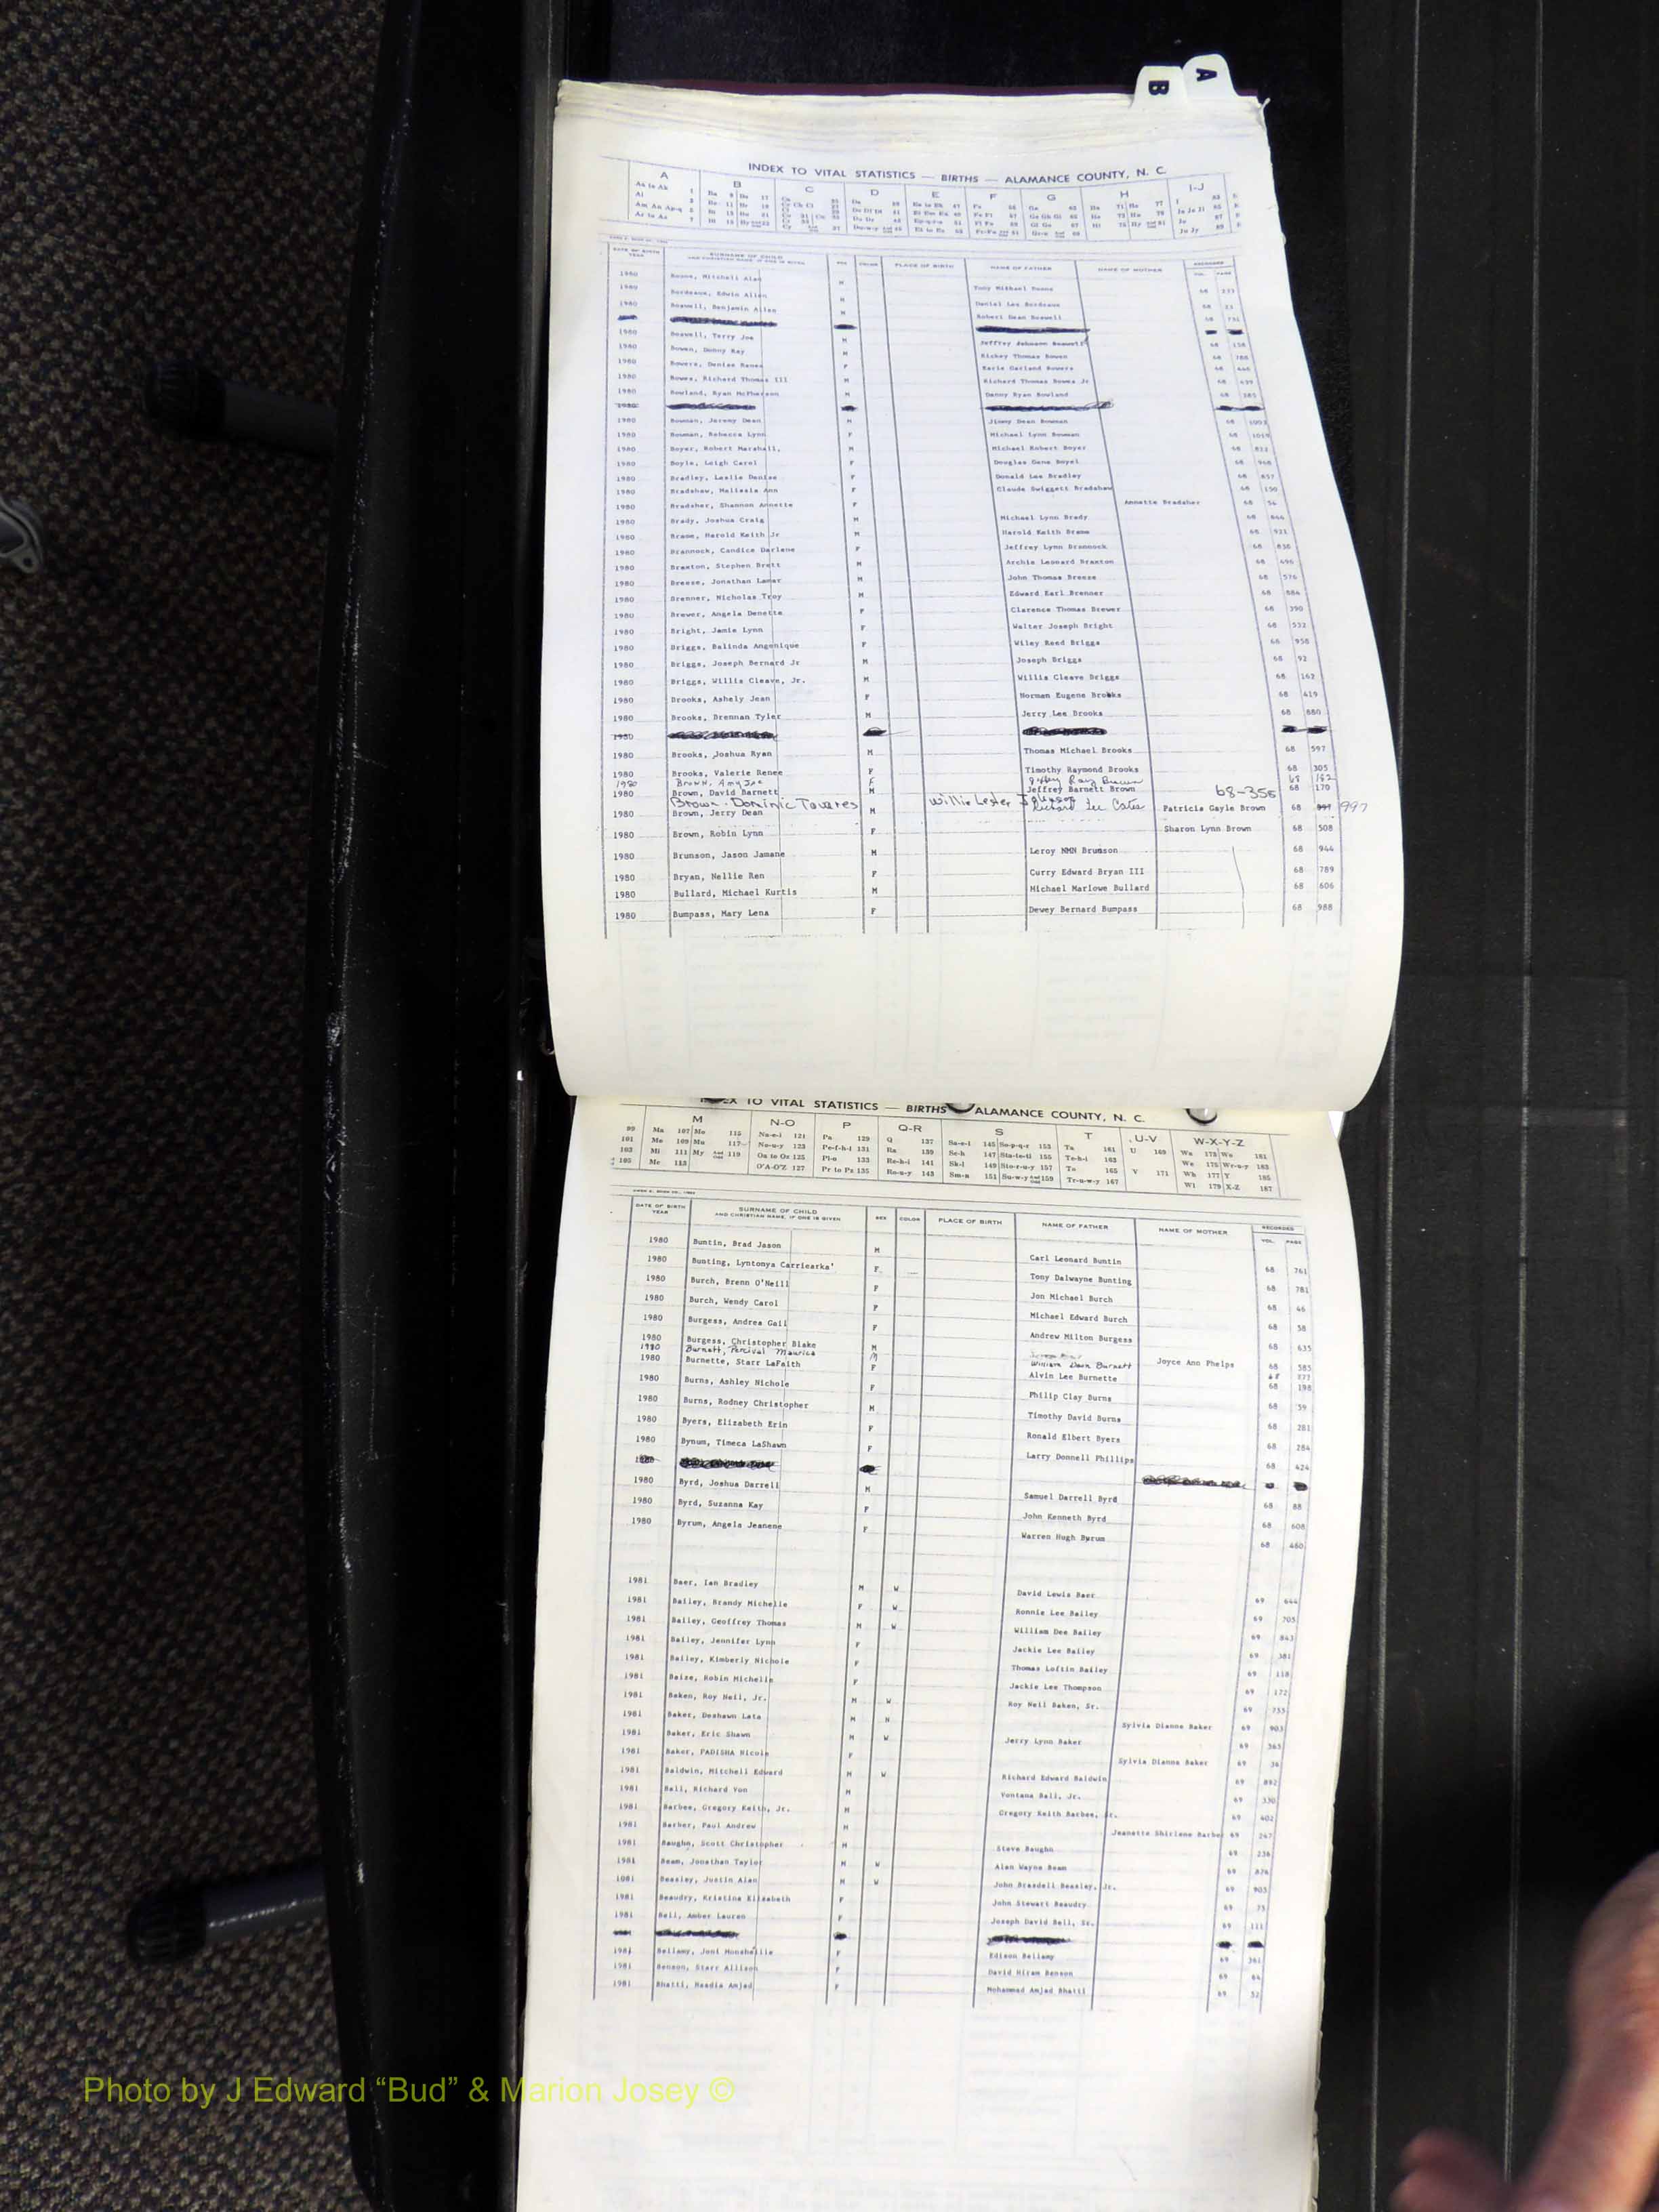 A
B
INDEX TO VITAL STATISTICS — BIRTHS — ALAMANCE COUNTY, N. C.
A B C D E F G H I-J
DATE OF BIRTH YEAR SURNAME OF CHILD AND CHRISTIAN NAME, IF ONE IS GIVEN SEX COLOR PLACE OF BIRTH NAME OF FATHER NAME OF MOTHER RECORDED VOL. PAGE
1980 Boone, Mitchell Alan M Tony Michael Boone 68
1980 Bordeaux, Edwin Allen M Daniel Lee Bordeaux 68
1980 Boswell, Benjamin Allen M Robert Dean Boswell 68
1980 Boswell, Terry Joe M Jeffrey Johnson Boswell 68
1980 Bowen, Danny Ray M Rickey Thomas Bowen 68
1980 Bowers, Denise Renee F Earle Garland Bowers 68
1980 Bowes, Richard Thomas III M Richard Thomas Bowes Jr 68 439
1980 Bowland, Ryan McPherson M Danny Ryan Bowland 68
1980
1980 Bowman, Jeremy Dean M Jimmy Dean Bowman 68
1980 Bowman, Rebecca Lynn F Michael Lynn Bowman 68
1980 Boyer, Robert Marshall, M Michael Robert Boyer 68 822
1980 Boyle, Leigh Carol F Douglas Gene Boyel 68 968
1980 Bradley, Leslie Denise F Donald Lee Bradley 68 857
1980 Bradshaw, Malissia Ann F Claude Swiggett Bradshaw 68 150
1980 Bradsher, Shannon Annette F Annette Bradsher 68 56
1980 Brady, Joshua Craig M Michael Lynn Brady 68
1980 Brame, Harold Keith Jr M Harold Keith Brame 68 921
1980 Brannock, Candice Darlene F Jeffrey Lynn Brannock 68 838
1980 Braxton, Stephen Brett M Archie Leonard Braxton 68 496
1980 Breeze, Jonathan Lamar M John Thomas Breeze 68 576
1980 Brenner, Nicholas Troy M Edward Earl Brenner 68 884
1980 Brewer, Angela Denette F Clarence Thomas Brewer 68 390
1980 Bright, Jamie Lynn F Walter Joseph Bright 68 532
1980 Briggs, Balinda Angenique F Wiley Reed Briggs 68 958
1980 Briggs, Joseph Bernard Jr M Joseph Briggs 68 92
1980 Briggs, Willis Cleave, Jr. M Willis Cleave Briggs 68 162
1980 Brooks, Ashely Jean F Norman Eugene Brooks 68 419
1980 Brooks, Brennan Tyler M Jerry Lee Brooks 68 880
1980
1980 Brooks, Joshua Ryan M Thomas Michael Brooks 68 597
1980 Brooks, Valerie Renee F Timothy Raymond Brooks 68 305
1980 Brown, Amy Joe F Ray Brown 68 182
1980 Brown, David Barnett M Jeffrey Barnett Brown 68 170
Brown, Dominic Tavares Willie Lester Johnson 68-355
1980 Brown, Jerry Dean M Richard Lee Cates Patricia Gayle Brown 68 997
1980 Brown, Robin Lynn F Sharon Lynn Brown 68 508
1980 Brunson, Jason Jamane M Leroy NMN Brunson 68 944
1980 Bryan, Nellie Ren F Curry Edward Bryan III 68 789
1980 Bullard, Michael Kurtis M Michael Marlowe Bullard 68 606
1980 Bumpass, Mary Lena F Dewey Bernard Bumpass 68 988
TO VITAL STATISTICS — BIRTHS ALAMANCE COUNTY, N. C.
M N-O P Q-R S T U-V W-X-Y-Z
99 Ma 107 Mo 115 Na-e-i 121 Pa 129 Q 137 Sa-e-i 145 So-p-q-r 153 Ta 161 U 169 Wa 173 Wo 181
101 Me 109 Mu 117 No-u-y 123 Pe-f-h-i 131 Ra 139 Sc-h 147 Sta-te-ti 155 Te-h-i 163 We 175 Wr-u-y 183
103 Mi 111 My 119 Oa to Oz 125 Pl-o 133 Re-h-i 141 Sk-l 149 Sto-r-u-y 157 To 165 V 171 Wh 177 Y 185
105 Mc 113 O'A-O'Z 127 Pr to Pz 135 Ro-u-y 143 Sm-n 151 Su-w-y 159 Tr-u-w-y 167 Wi 179 X-Z 187
DATE OF BIRTH YEAR SURNAME OF CHILD AND CHRISTIAN NAME, IF ONE IS GIVEN SEX COLOR PLACE OF BIRTH NAME OF FATHER NAME OF MOTHER RECORDED VOL. PAGE
1980 Buntin, Brad Jason M Carl Leonard Buntin 68 761
1980 Bunting, Lyntonya Carriearka' F Tony Dalwayne Bunting 68 781
1980 Burch, Brenn O'Neill F Jon Michael Burch 68 46
1980 Burch, Wendy Carol F Michael Edward Burch 68 58
1980 Burgess, Andrea Gail F Andrew Milton Burgess 68 635
1980 Burgess, Christopher Blake M Joyce Ann Phelps 68 585
1980 Burnett, Percival Maurice M William Dean Burnett 68 777
1980 Burnette, Starr LaFaith F Alvin Lee Burnette 68 198
1980 Burns, Ashley Nichole F Philip Clay Burns 68 59
1980 Burns, Rodney Christopher M Timothy David Burns 68 281
1980 Byers, Elizabeth Erin F Ronald Elbert Byers 68 284
1980 Bynum, Timeca LaShawn F Larry Donnell Phillips 68 424
1980
1980 Byrd, Joshua Darrell M Samuel Darrell Byrd 68 88
1980 Byrd, Suzanna Kay F John Kenneth Byrd 68 608
1980 Byrum, Angela Jeanene F Warren Hugh Byrum 68 460
1981 Baer, Ian Bradley M W David Lewis Baer 69 644
1981 Bailey, Brandy Michelle F W Ronnie Lee Bailey 69 705
1981 Bailey, Geoffrey Thomas M W William Dee Bailey 69 843
1981 Bailey, Jennifer Lynn F Jackie Lee Bailey 69 381
1981 Bailey, Kimberly Nichole F Thomas Loftin Bailey 69 118
1981 Baize, Robin Michelle F Jackie Lee Thompson 69 172
1981 Baken, Roy Neil, Jr. M W Roy Neil Baken, Sr. 69 755
1981 Baker, Deshawn Lata M N Sylvia Dianne Baker 69 903
1981 Baker, Eric Shawn M W Jerry Lynn Baker 69 365
1981 Baker, FADISHA Nicole F Sylvia Dianne Baker 69 36
1981 Baldwin, Mitchell Edward M W Richard Edward Baldwin 69 892
1981 Ball, Richard Von M Vontana Ball, Jr. 69 330
1981 Barbee, Gregory Keith, Jr. M Gregory Keith Barbee, Sr. 69 402
1981 Barber, Paul Andrew M Jeanette Shirlene Barber 69 247
1981 Baughn, Scott Christopher M Steve Baughn 69 236
1981 Beam, Jonathan Taylor M W Alan Wayne Beam 69 876
1081 Beasley, Justin Alan M W John Brasdell Beasley, Jr. 69 905
1981 Beaudry, Kristina Elizabeth F John Stewart Beaudry 69 75
1981 Bell, Amber Lauren F Joseph David Bell, Sr. 69 111
1981 Bellamy, Joni F Edison Bellamy 69 361
1981 Benson, Starr Allison F David Hiram Benson 69 64
1981 Bhatti, Haadia Amjad F Mohammad Amjad Bhatti 69 52
Photo by J Edward “Bud” & Marion Josey ©